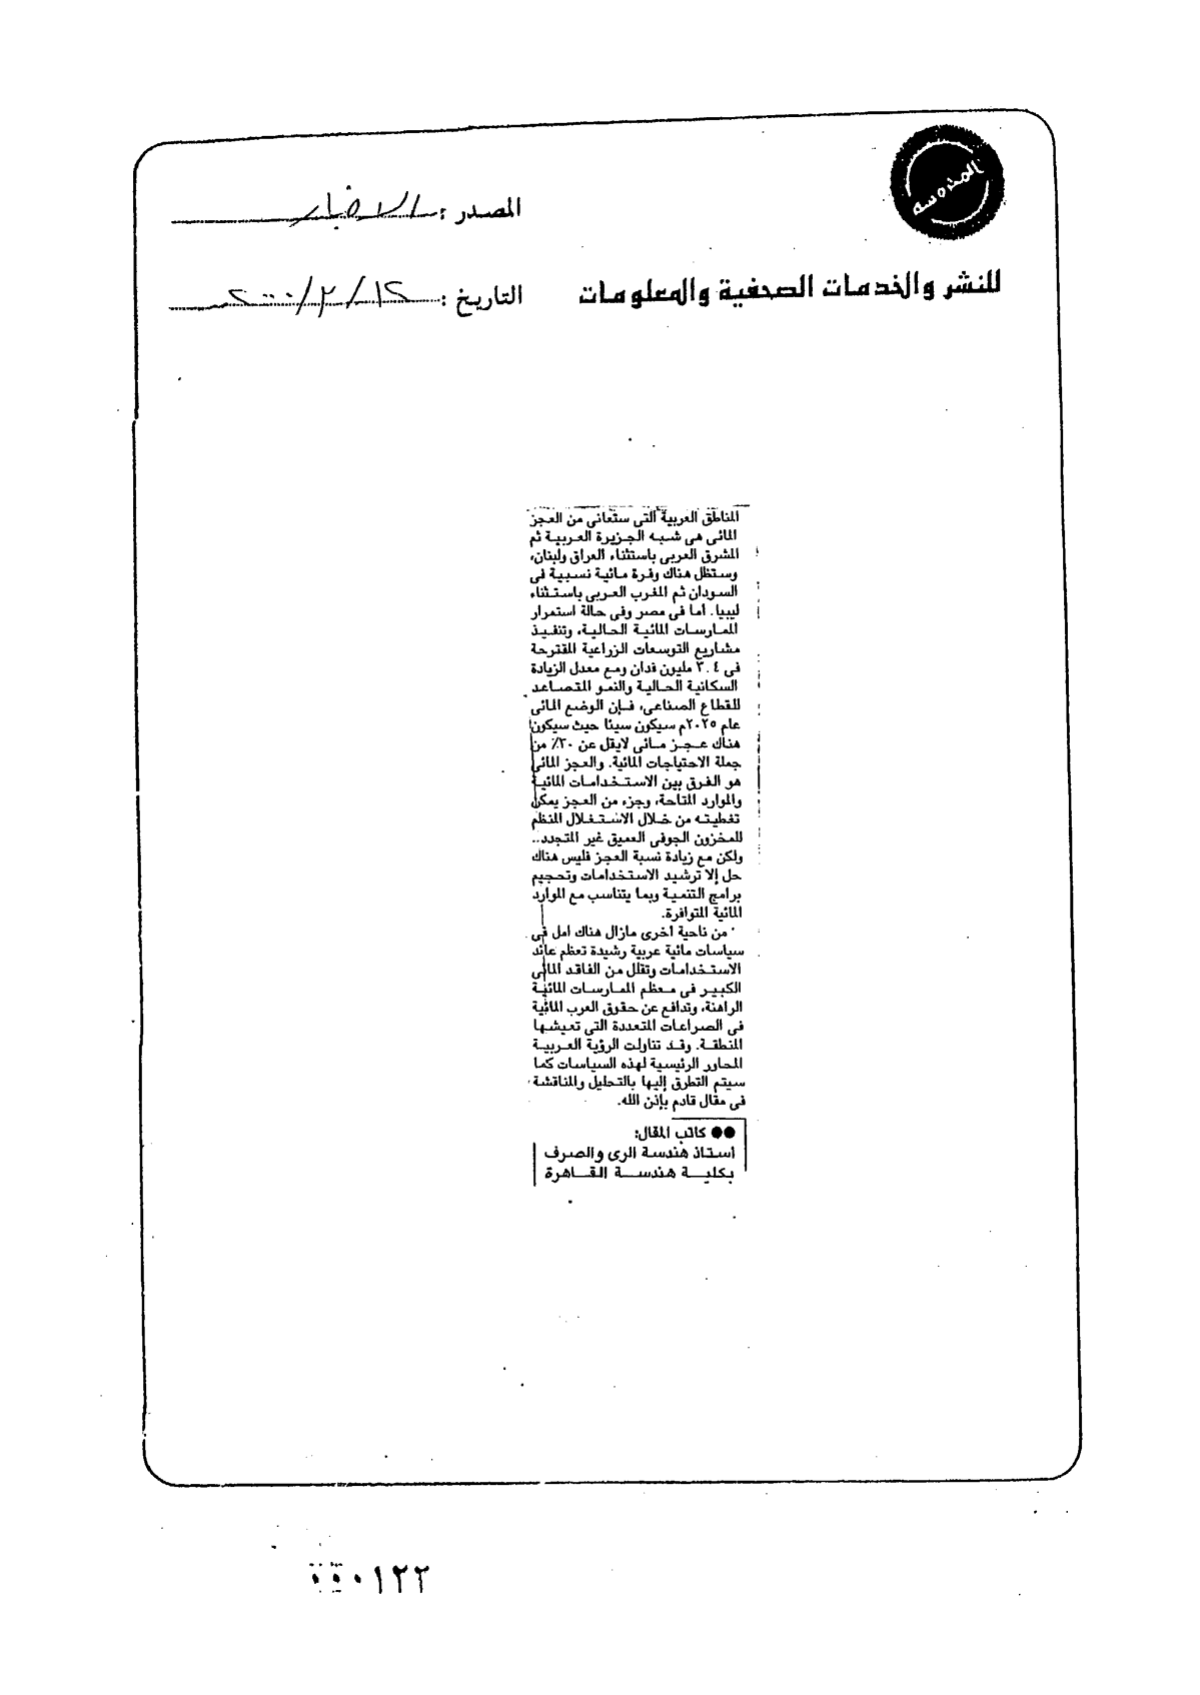 المدوسه
المصدر : الاخبار
للنشر والخدمات الصحفية والمعلومات
التاريخ : ١٢/٢/٢٠٠٠
المناطق العربية التى ستعانى من العجز
المائى هى شبه الجزيرة العربية ثم
المشرق العربى باستثناء العراق ولبنان،
وستظل هناك وفرة مائية نسبية فى
السودان ثم المغرب العربى باستثناء
ليبيا. أما فى مصر وفى حالة استمرار
الممارسات المائية الحالية، وتنفيذ
مشاريع التوسعات الزراعية المقترحة
فى ٣.٤ مليون فدان ومع معدل الزيادة
السكانية الحالية والنمو المتصاعد
للقطاع الصناعى، فإن الوضع المائى
عام ٢٠٢٥م سيكون سيئا حيث سيكون
هناك عجز مائى لايقل عن ٣٠٪ من
جملة الاحتياجات المائية. والعجز المائى
هو الفرق بين الاستخدامات المائية
والموارد المتاحة، وجزء من العجز يمكن
تغطيته من خلال الاستغلال المنظم
للمخزون الجوفى العميق غير المتجدد..
ولكن مع زيادة نسبة العجز فليس هناك
حل إلا ترشيد الاستخدامات وتحجيم
برامج التنمية وبما يتناسب مع الموارد
المائية المتوافرة.
من ناحية أخرى مازال هناك امل فى
سياسات مائية عربية رشيدة تعظم عائد
الاستخدامات وتقلل من الفاقد المائى
الكبير فى معظم الممارسات المائية
الراهنة، وتدافع عن حقوق العرب المائية
فى الصراعات المتعددة التى تعيشها
المنطقة. وقد تناولت الرؤية العربية
المحاور الرئيسية لهذه السياسات كما
سيتم التطرق إليها بالتحليل والمناقشة
فى مقال قادم بإذن الله.
●● كاتب المقال:
استاذ هندسة الرى والصرف
بكلية هندسة القاهرة
٠١٢٢